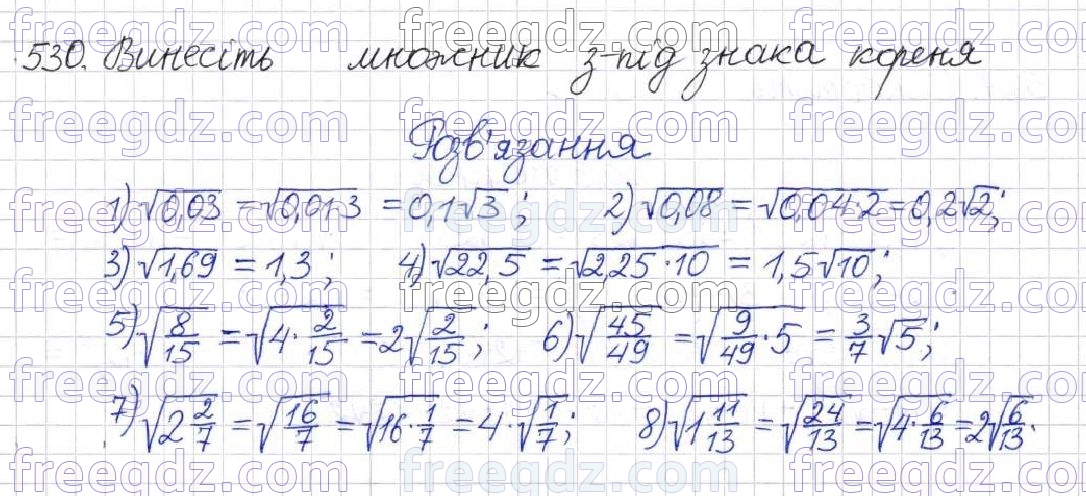 530. Винесіть множник з-під знака кореня
Розв'язання
1) √0,03 = √0,01·3 = 0,1√3; 2) √0,08 = √0,04·2 = 0,2√2;
3) √1,69 = 1,3; 4) √22,5 = √2,25·10 = 1,5√10;
5) √8/15 = √4·2/15 = 2√2/15; 6) √45/49 = √9/49·5 = 3/7√5;
7) √2 2/7 = √16/7 = √16·1/7 = 4·√1/7; 8) √1 11/13 = √24/13 = √4·6/13 = 2√6/13.
freegdz.com